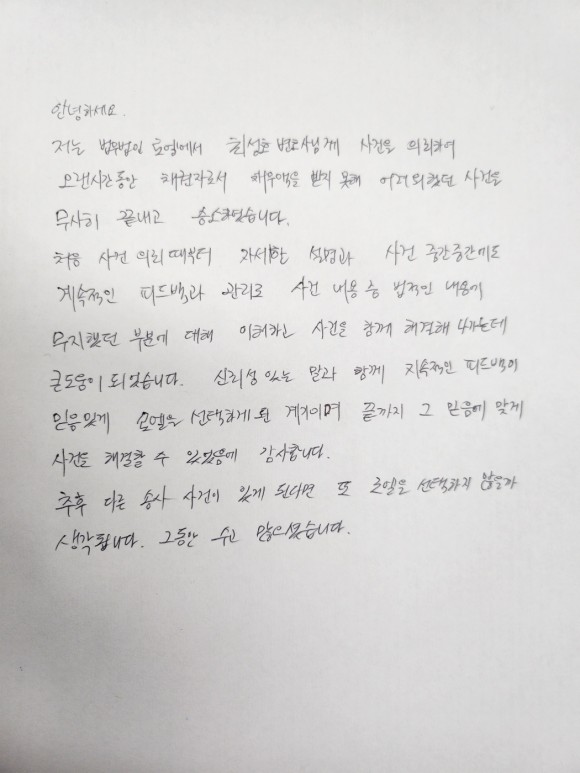 안녕하세요.
저는 법무법인 로엘에서 최성호 변호사님께 사건을 의뢰하여
오랜시간동안 채권자로서 채무액을 받지 못해 어려워했던 사건을
무사히 끝내고 승소하였습니다.
처음 사건 의뢰 때부터 자세한 설명과 사건 중간중간마다
계속적인 피드백과 관리로 사건 내용 중 법적인 내용에
무지했던 부분에 대해 이해하고 사건을 함께 해결해 나가는데
큰도움이 되었습니다. 신뢰성 있는 말과 함께 지속적인 피드백이
믿음있게 로엘을 선택하게 된 계기이며 끝까지 그 믿음에 맞게
사건도 해결할 수 있었음에 감사합니다.
추후 다른 송사 사건이 있게 된다면 또 로엘을 선택하지 않을까
생각됩니다. 그동안 수고 많으셨습니다.